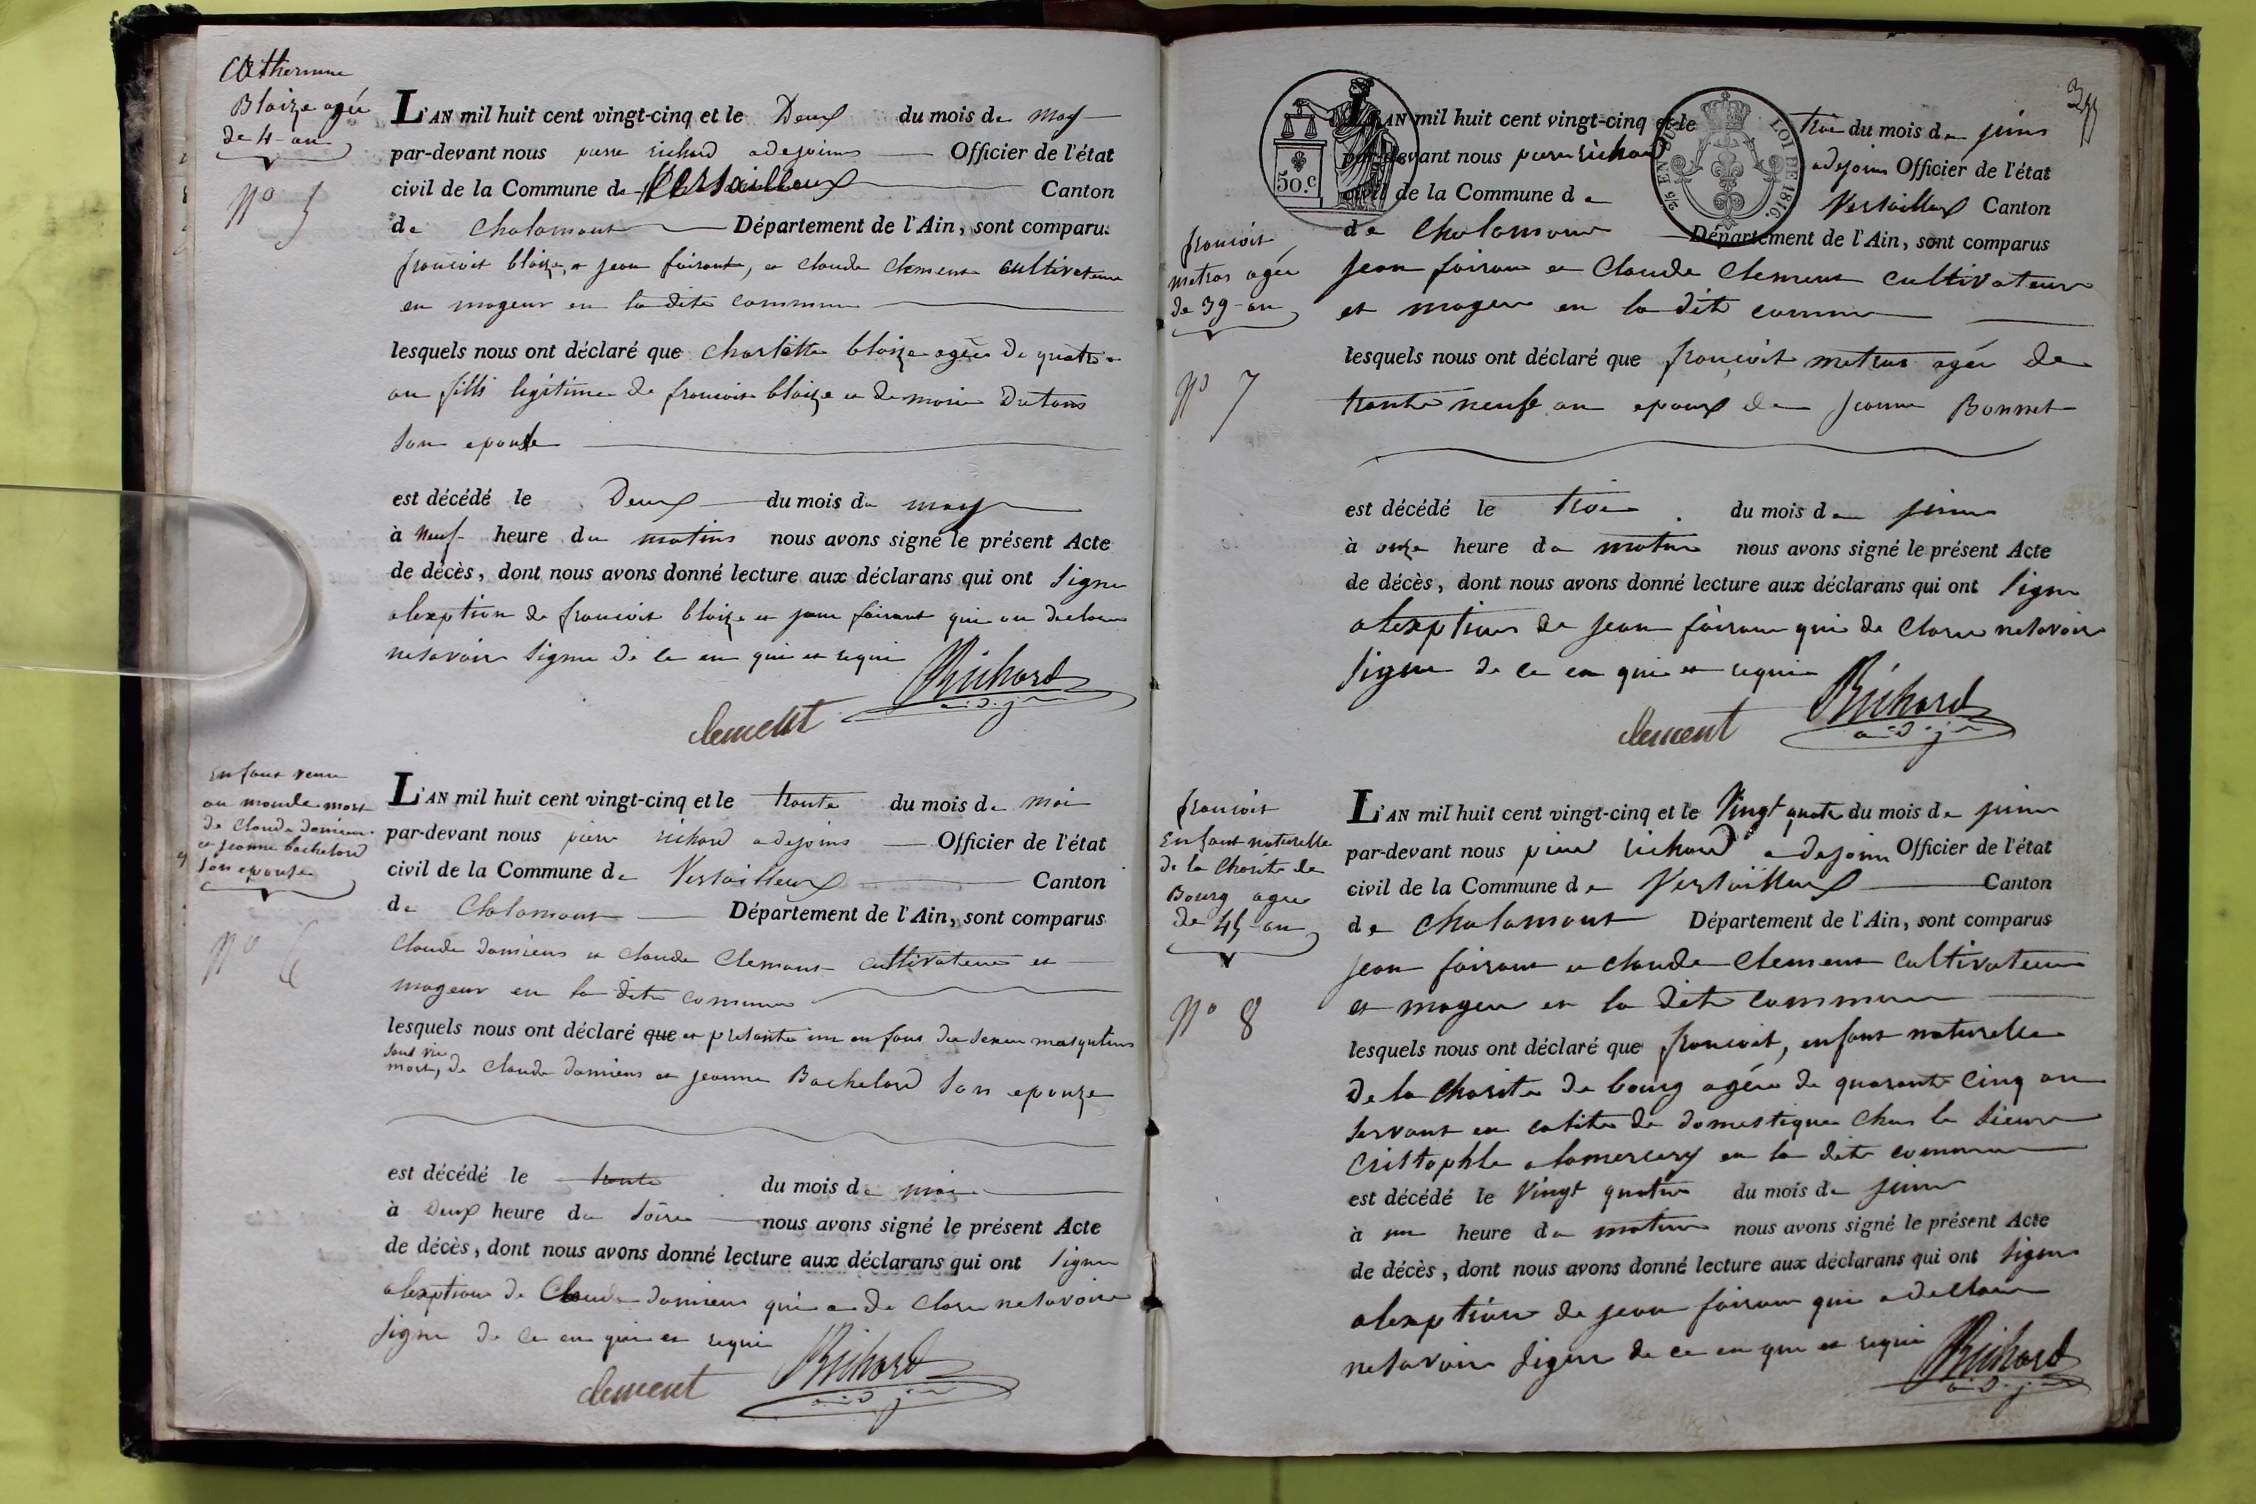 Blaize agée
de 4 an
N° 5
L'AN mil huit cent vingt-cinq et le Deux du mois de may
par-devant nous pierre richard adejoins Officier de l'état
civil de la Commune de Versailleux Canton
de Chalamont Département de l'Ain, sont comparu:
francoit blaize, et jean foirant, et claude clement cultivateur
en mageur en la dite commune
lesquels nous ont déclaré que charlette blaize agèe de quatre
an filli legitime de francois blaize et de marie Dutans
son epouse
est décédé le Deux du mois de may
à neuf heure du matins nous avons signé le présent Acte
de décès, dont nous avons donné lecture aux déclarans qui ont signe
alexption de francoit blaize et jean foirant qui on declare
nesavoir signe de ce en qui et requi
Richard
a.d.j
clement
Enfant venu
au monde mort
de claude damiens
et jeanne bachelard
son epouse
N° 6
L'AN mil huit cent vingt-cinq et le trante du mois de mai
par-devant nous pierre richard adejoins Officier de l'état
civil de la Commune de Versailleux Canton
de Chalamont Département de l'Ain, sont comparus
claude damiens et claude Clemant cultivateur et
mageur en la dite commune
lesquels nous ont déclaré que et presante un enfant du sexe masqulins
sans vie
mort, de claude damiens et jeanne Bachelard son epouze
est décédé le trante du mois de mai
à deux heure du soire nous avons signé le présent Acte
de décès, dont nous avons donné lecture aux déclarans qui ont signe
alexption de Claude damiens qui a de clare nesavoire
signe de ce en qui et requi
Richard
a.d.j
clement
50.c
EN SUS
LOI DE 1816.
L'AN mil huit cent vingt-cinq et le troi du mois de juins
par-devant nous pierre richard adejoins Officier de l'état
civil de la Commune de Versailleux Canton
de Chalamont Département de l'Ain, sont comparus
francoit
metras agée
de 39 an
N° 7
jean foirant et Claude Clement cultivateur
et mageur en la dite commune
lesquels nous ont déclaré que francoit metras agée de
trante neuf an epoux de Jeanne Bonnet
est décédé le troi du mois de juins
à onze heure du matin nous avons signé le présent Acte
de décès, dont nous avons donné lecture aux déclarans qui ont signe
alexption de jean foirant qui de clare nesavoir
signe de ce en qui et requi
Richard
a.d.j
clement
francoit
Enfant naturelle
de la charite de
Bourg agee
de 45 an
N° 8
L'AN mil huit cent vingt-cinq et le Vingt quatre du mois de juin
par-devant nous pierre richard adejoins Officier de l'état
civil de la Commune de Versailleux Canton
de Chalamont Département de l'Ain, sont comparus
jean foirant et claude Clement cultivateur
et mageur en la dite commune
lesquels nous ont déclaré que francoit, enfant naturelle
de la charite de bourg agée de quarante cinq an
servant en calite de domestique chas le sieur
Cristophle alamercery en la dite commune
est décédé le Vingt quatre du mois de juin
à un heure du matin nous avons signé le présent Acte
de décès, dont nous avons donné lecture aux déclarans qui ont signe
alexption de jean foirant qui a declare
nesavoir signe de ce en qui et requi
Richard
a.d.j